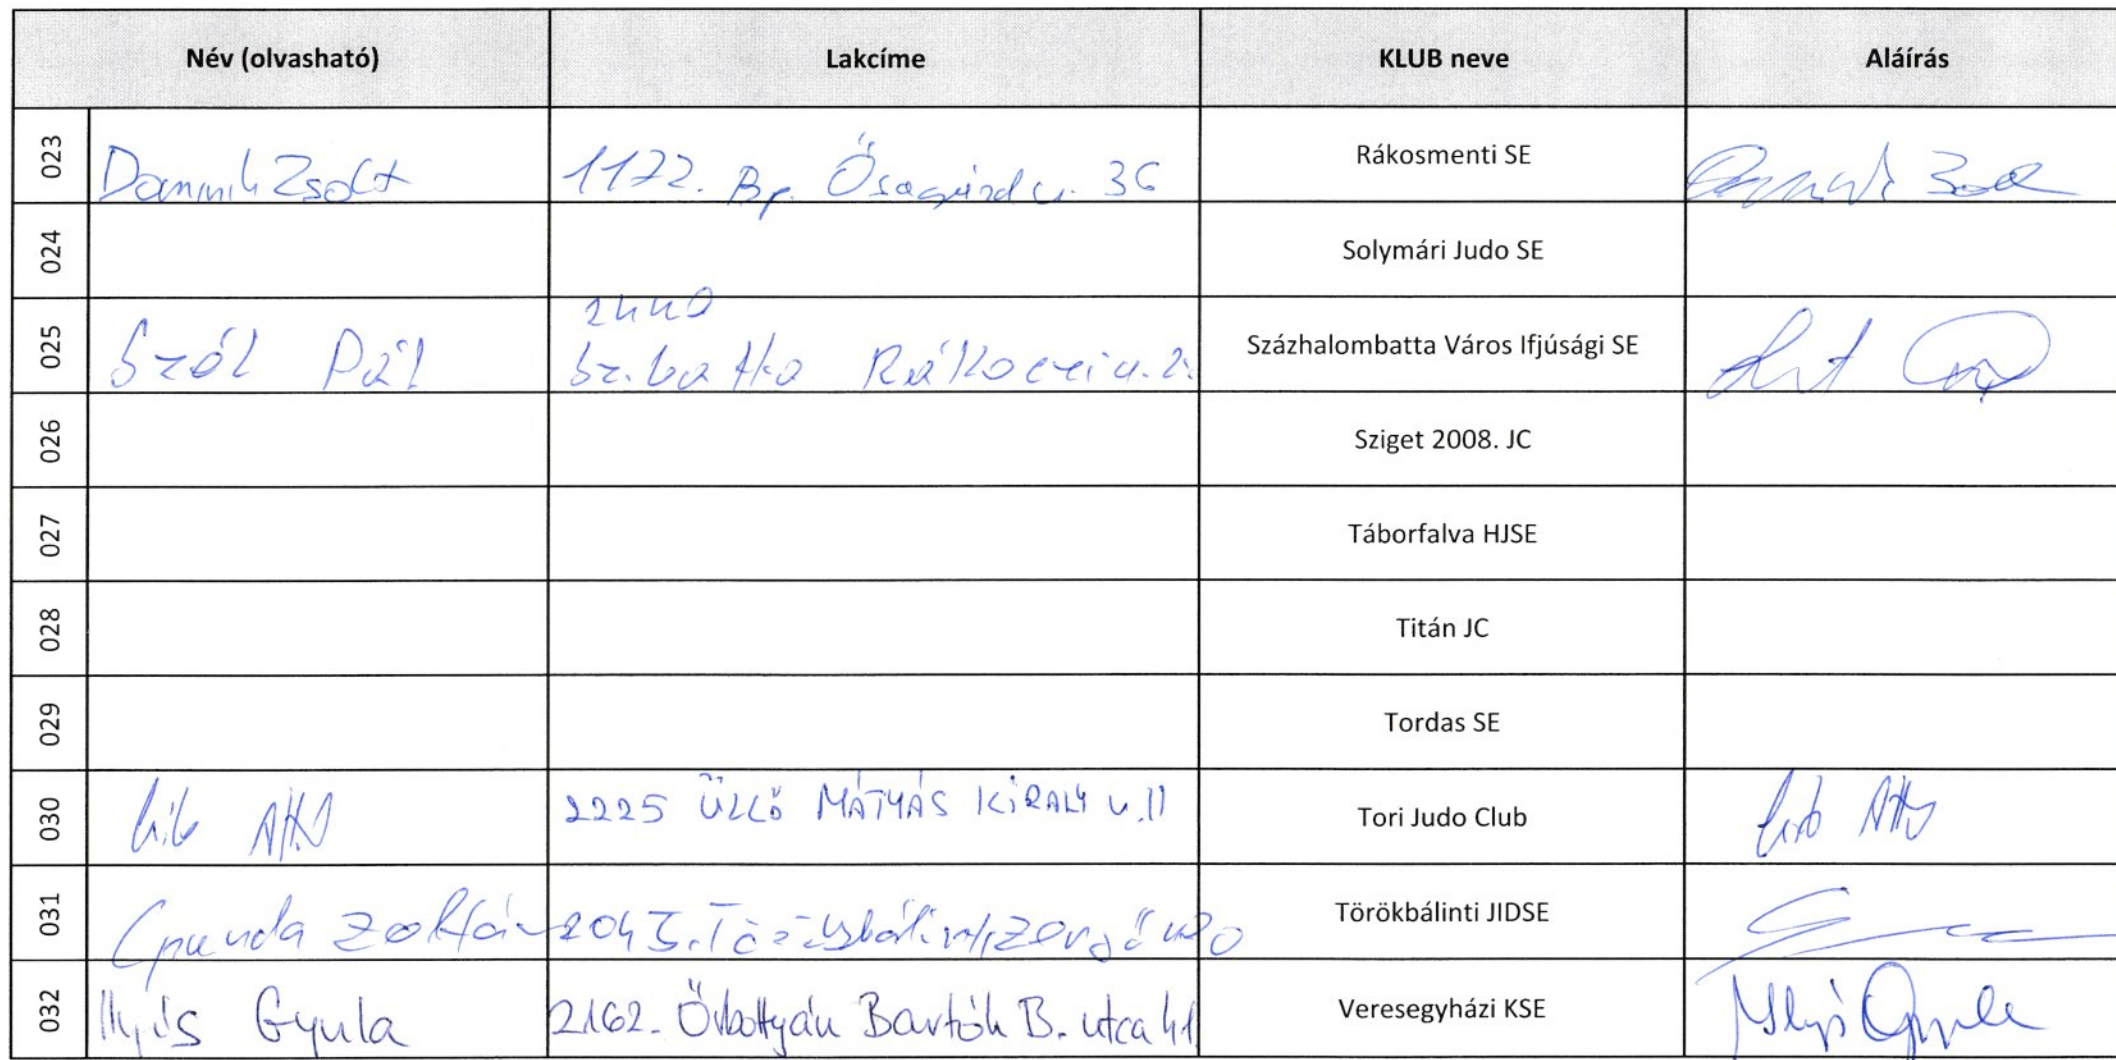 Név (olvasható) Lakcíme KLUB neve Aláírás
023 Zsolt 1172. Bp. Ősagárd u. 36 Rákosmenti SE
024 Solymári Judo SE
2440
025 Szól Pál Sz.batta Rákoczi u. Százhalombatta Város Ifjúsági SE
026 Sziget 2008. JC
027 Táborfalva HJSE
028 Titán JC
029 Tordas SE
030 2225 ÜLLŐ MÁTYÁS KIRALY U. 11 Tori Judo Club
031 Zoltán 2045. Törökbálint, Törökbálinti JIDSE
032 Illyés Gyula 2162. Őrbottyán Bartók B. utca 41 Veresegyházi KSE